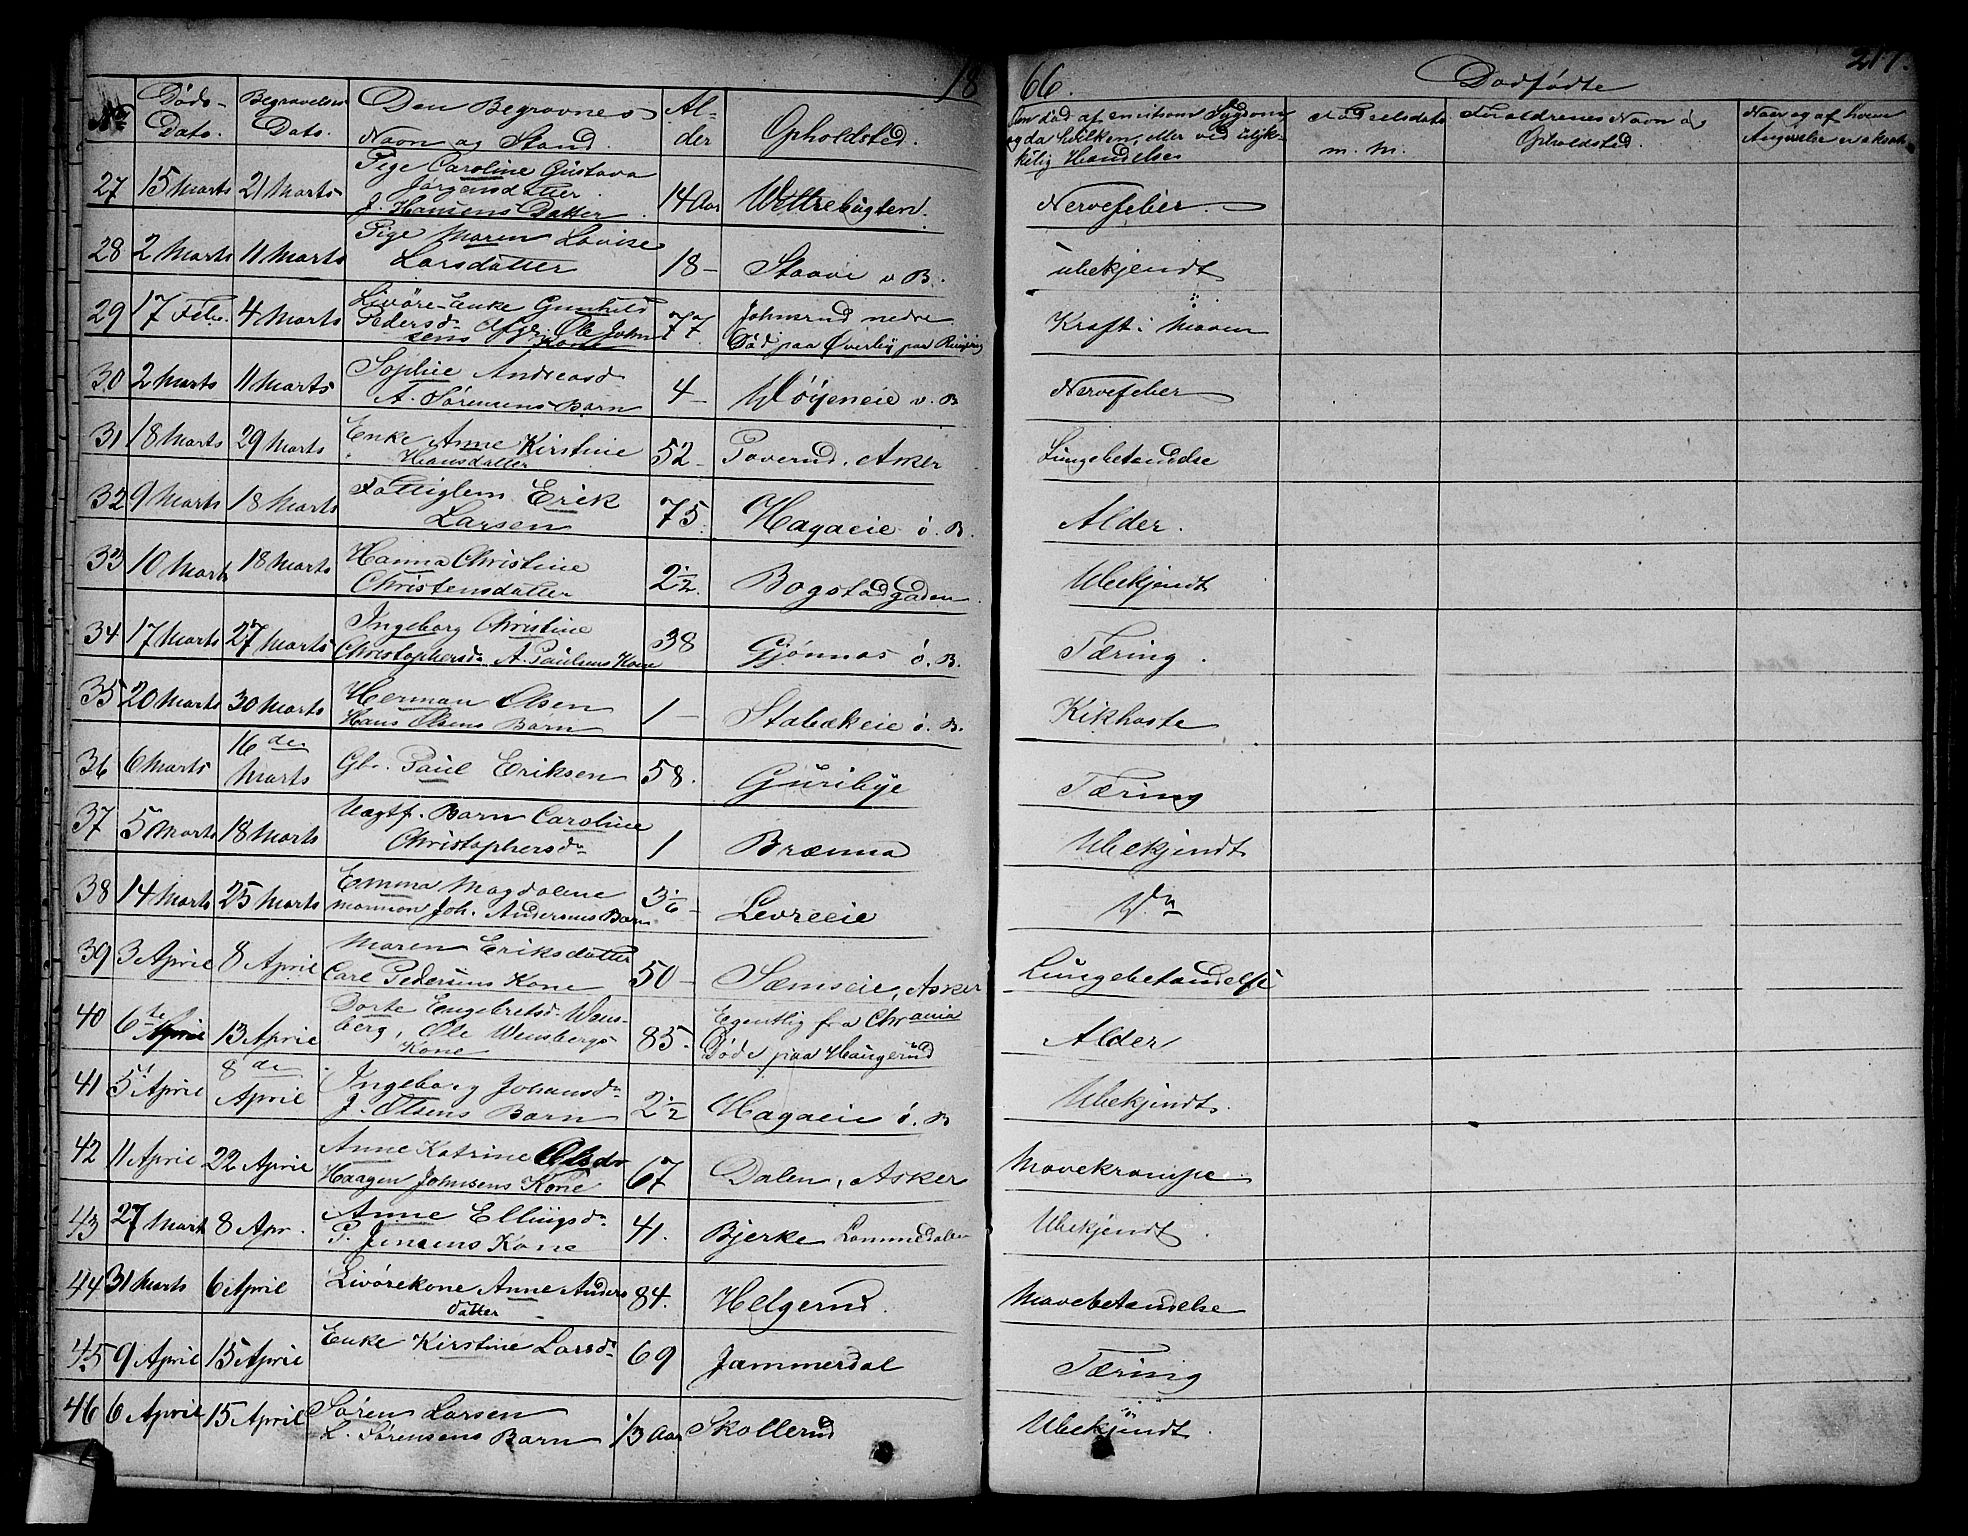 1866. 217.
Dødfødte
No Døds-Dato. Begravelses Dato. Den Begravnes Navn og Stand. Alder Opholdsted. Om død af en vitsom Sygdom og da hvilken, eller ved ulykkelig Hændelse Fødselsdato m. m. Forældrenes Navn og Opholdsted. Naar og af hvem Angivelse er skeet.
27 15 Marts 21 Marts Pige Caroline Gustava Jørgensdatter J. Hansens Datter 14 Aar Wettrebugten. Nervefeber.
28 2 Marts 11 Marts Pige Maren Lovise Larsdatter 18 – Staavi v B. ubekjendt
29 17 Febr. 4 Marts Livøre-Enke Gunhild Pedersd. Afgs. Ole Johnsens Kone 77 Johnsrud nedre Død paa Øverby paa Ringerig Kræft i Maven
30 2 Marts 11 Marts Sophie Andreasd. A. Sørensens Barn 4 – Wøyeneie v. B Nervefeber
31 18 Marts 29 Marts Enke Anne Kirstine Hansdatter 52 – Poverud. Asker Lungebetændelse
32 9 Marts 18 Marts Fattiglem Erik Larsen 75. Hagaeie ø. B. Alder.
33 10 Marts 18 Marts Hanna Christine Christensdatter 2 1/2 Bogstadgaden. Ubekjendt
34 17 Marts 27 Marts Ingeborg Christine Christophersd. A. Paulsens Kone 38 Gjønnas ø. B. Tæring.
35 20 Marts 30 Marts Herman Olsen Hans Olsens Barn 1 – Stabækeie ø. B. Kikhoste
36 6 Marts 16de Marts Gbr. Paul Eriksen 58. Guribye Tæring
37 5 Marts 18 Marts Uægtf. Barn Caroline Christophersd. 1 Brænna Ubekjendt
38 14 Marts 25 Marts Emma Magdalene Joh. Andersens Barn 3/6 – Levreeie Do
39 3 April 8 April Maren Eriksdatter Carl Pedersens Kone 50 – Sæmseie, Asker Lungebetændelse
40 6te April 13 April Dorte Engebretsd. Weinsberg, Ole Weinsbergs Kone 85. Egentlig fra Chrania Døde paa Haugerud Alder
41 5t April 8de April Ingeborg Johansd. J. Olsens Barn 2 1/2 Hagaeie ø. B Ubekjendt.
42 11 April 22 April Anne Katrine Olsdr Haagen Johnsens Kone 67 Dalen, Asker Mavekrampe
43 27 Mart 8 Apr. Anne Ellingsd. P. Jensens Kone 41. Bjerke Lommedalen Ubekjendt.
44 31 Marts 6 April Livørekone Anne Andersdatter 84. Helgerud. Mavebetændelse
45 9 April 15 April Enke Kirstine Larsd. 69 Jammerdal Tæring
46 6 April 15 April Søren Larsen L. Sørensens Barn 1/3 Aar Skollerud Ubekjendt.